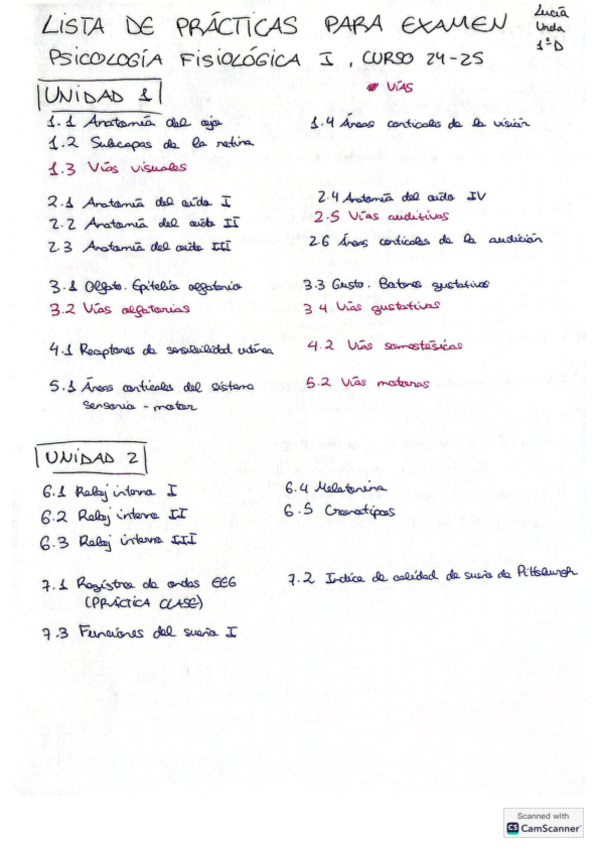 LISTA DE PRÁCTICAS PARA EXAMEN
Lucía
Unda
1ºD
PSICOLOGÍA FISIOLÓGICA I, CURSO 24-25
VÍAS
UNIDAD 1
1.1 Anatomía del ojo
1.4 Áreas corticales de la visión
1.2 Subcapas de la retina
1.3 Vías visuales
2.1 Anatomía del oído I
2.4 Anatomía del oído IV
2.2 Anatomía del oído II
2.5 Vías auditivas
2.3 Anatomía del oído III
2.6 Áreas corticales de la audición
3.1 Olfato. Epitelio olfatorio
3.3 Gusto. Botones gustativos
3.2 Vías olfatorias
3.4 Vías gustativas
4.1 Receptores de sensibilidad cutánea
4.2 Vías somestésicas
5.1 Áreas corticales del sistema
sensorio-motor
5.2 Vías motoras
UNIDAD 2
6.1 Reloj interno I
6.4 Melatonina
6.2 Reloj interno II
6.5 Cronotipos
6.3 Reloj interno III
7.1 Registros de ondas EEG
(PRÁCTICA CLASE)
7.2 Indice de calidad de sueño de Pittsburgh
7.3 Funciones del sueño I
Scanned with
CS CamScanner